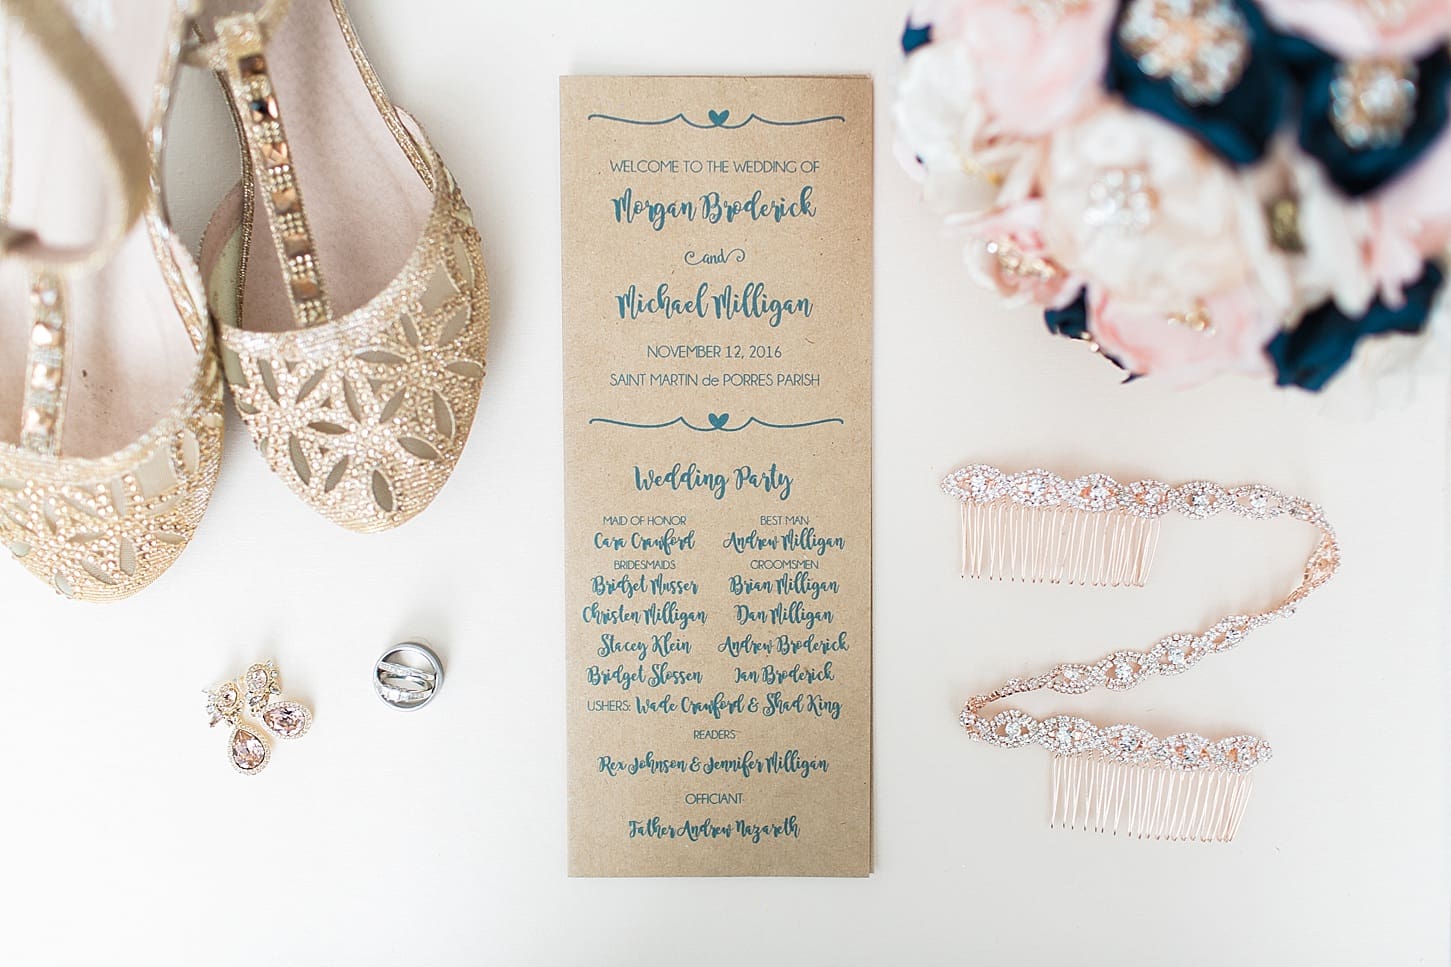 WELCOME TO THE WEDDING OF
Morgan Broderick
and
Michael Milligan
NOVEMBER 12, 2016
SAINT MARTIN de PORRES PARISH
Wedding Party
MAID OF HONOR BEST MAN
Cara Crawford Andrew Milligan
BRIDESMAIDS GROOMSMEN
Bridget Musser Brian Milligan
Christen Milligan Dan Milligan
Stacey Klein Andrew Broderick
Bridget Slossen Ian Broderick
USHERS: Wade Crawford & Shad King
READERS
Rex Johnson & Jennifer Milligan
OFFICIANT
Father Andrew Nazareth